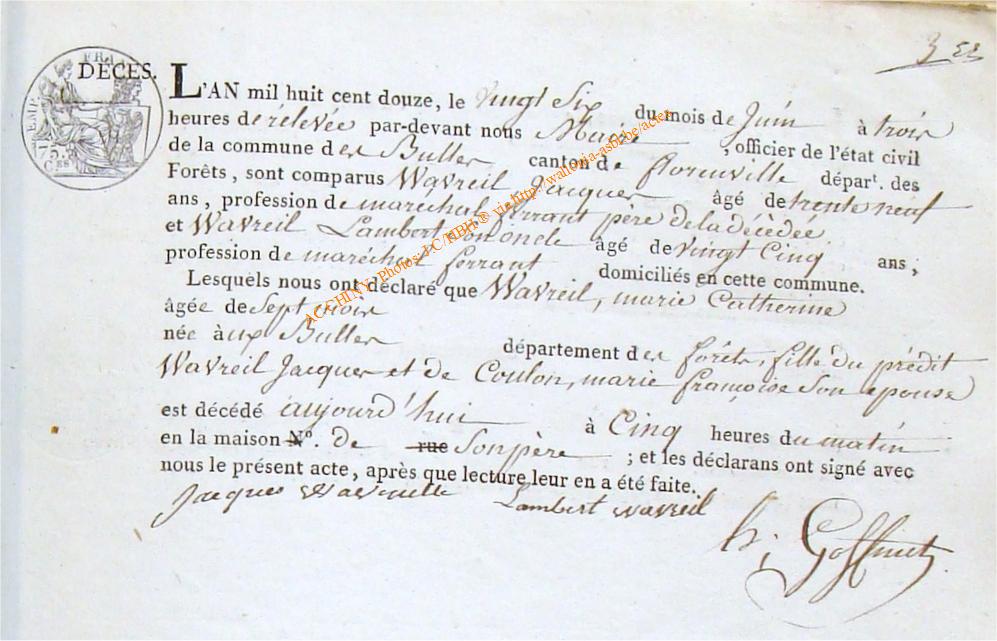 3 es
DÉCES.
L'AN mil huit cent douze, le vingt Six du mois de Juin à trois
heures de rélevée par-devant nous Maire, officier de l'état civil
de la commune des Bulles canton de florenville départ. des
Forêts, sont comparus Wavreil Jacques âgé de trente neuf
ans, profession de maréchal ferrant père de la décédée
et Wavreil Lambert son oncle âgé de vingt Cinq ans;
profession de maréchal ferrant domiciliés en cette commune.
Lesquels nous ont déclaré que Wavreil, marie Catherine
âgée de Sept mois
née à ux Bulles département des forêts, fille du prédit
Wavreil Jacques et de Coulon, marie françoise Son epouse
est décédé aujourd'hui à Cinq heures du matin
en la maison N°. de rue Son père ; et les déclarans ont signé avec
nous le présent acte, après que lecture leur en a été faite.
Jacques Lambert wavreil
h; Goffinet
ACCHINY, Photos: J.C/HBH® via http://wallonia-asbl.be/actes